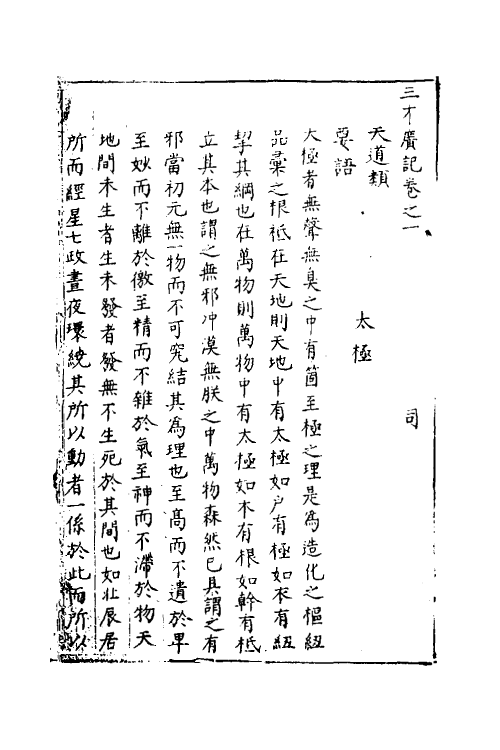 三才廣記卷之一
天道類　太極　司
要語
太極者無聲無臭之中有箇至極之理是爲造化之樞紐
品彙之根柢在天地則天地中有太極如户有極如衣有紐
挈其綱也在萬物則萬物中有太極如木有根如幹有柢
立其本也謂之無邪冲漠無朕之中萬物森然已具謂之有
邪當初元無一物而不可究結其爲理也至高而不遺於卑
至妙而不離於儌至精而不雜於氣至神而不滯於物天
地間未生者生未發者發無不生死於其間也如北辰居
所而經星七政晝夜環繞其所以動者一係於此而所以